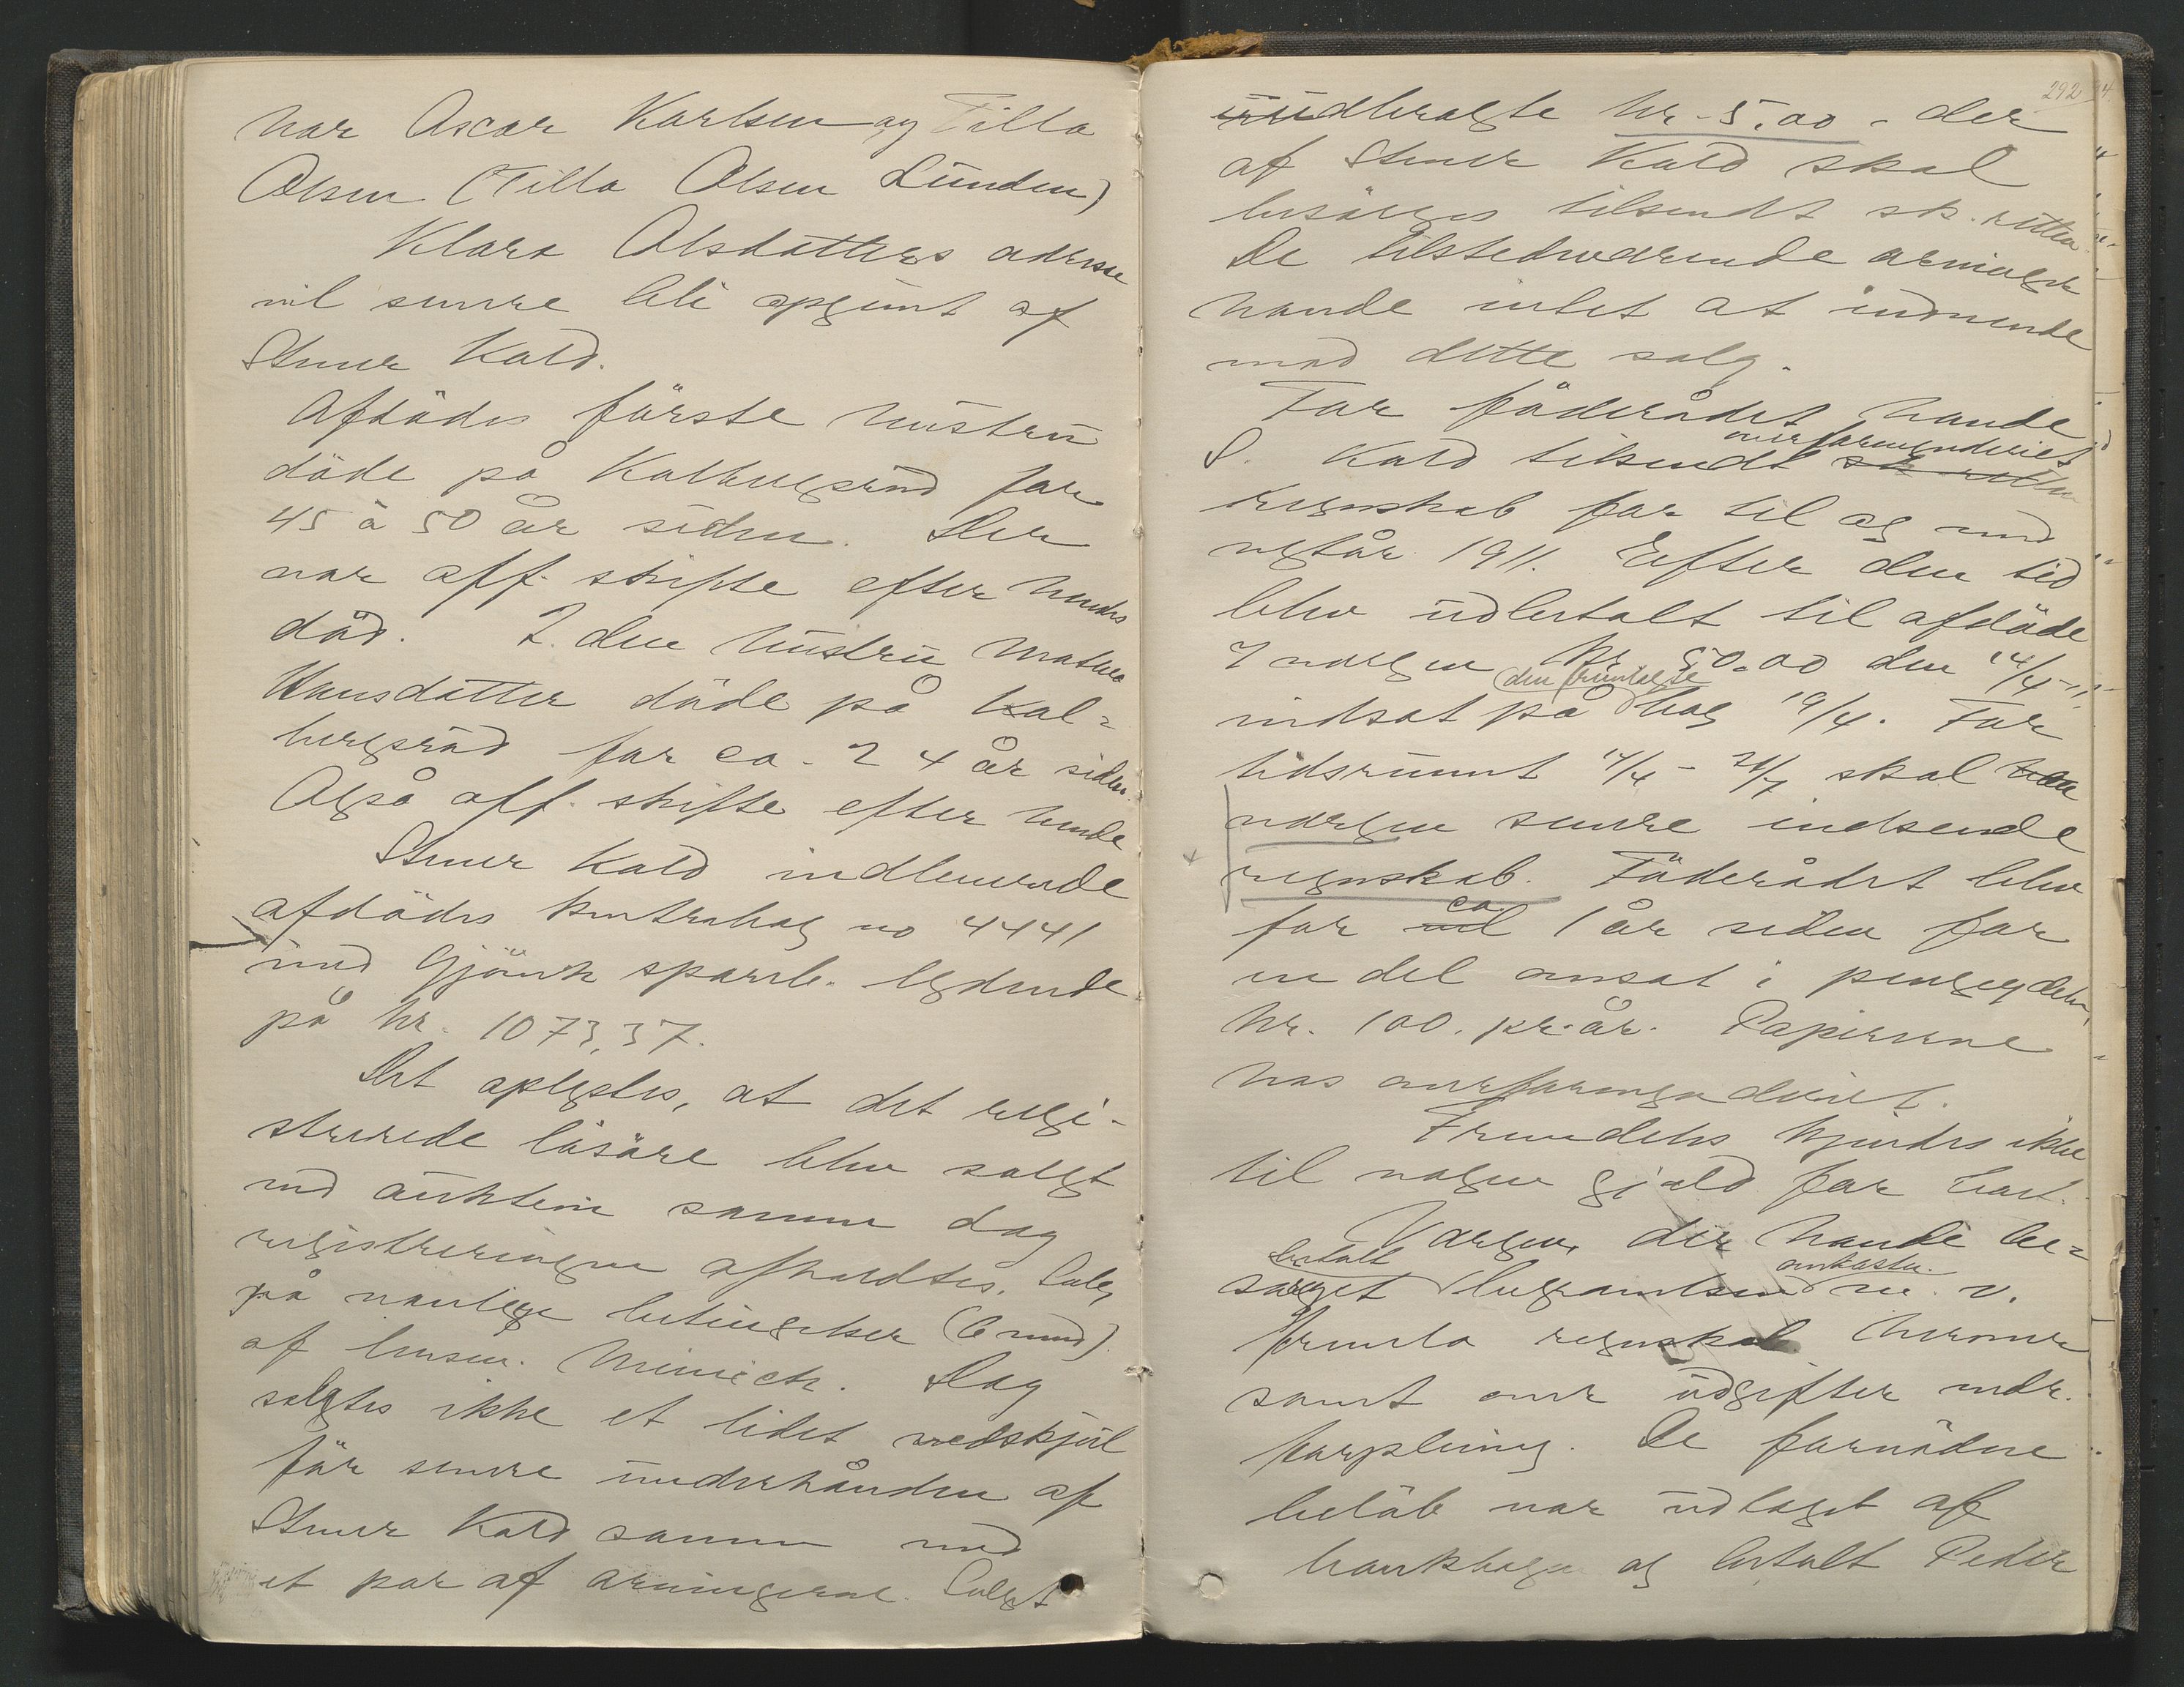 var Oscar Karlsen og Tilla
Olsen (Tilla Olsen Lunden)
Klara Olsdatters adresse
vil senere bli opgivet af
Stener Kald.
Afdødes første hustru
døde på Kolbergsrud for
45 à 50 år siden. Der
var off. skifte efter hendes
død. 2. den hustru Mathea
Hansdatter døde på Kol=
bergsrud for ca. 24 år siden.
Også off. skifte efter hende
Stener Kald indleverede
afdødes kontrabog no 4441
med Gjøvik spareb. lydende
på kr. 1073,37.
Det oplystes, at det regi-
strerede løsøre blev solgt
ved auktion samme dag
registreringen afholdtes. Salg
på vanlige betingelser (6 mnd)
af lensm. Minich. Dog
solgtes ikke et lidet vedskjul
før senere underhånden af
Stener Kald sammen med
et par af arvingerne. Salget
292
indbragte kr. 5,00 - der
af Stener Kald skal
besørges tilsendt sk. retten
De tilstedeværende arvinger
havde intet at indvende
mod dette salg.
For føderådet havde
overformynderiet
S. Kald tilsendt sk retten
regnskab for til og med
nytår 1911. Efter den tid
blev udbetalt til afdøde
v vergen kr. 50.00 den 4/4-11,
den fremlagte
indsat på bog 19/4. For
tidsrummet 4/4 - 24/7 skal han
vergen senere indsende
regnskab. Føderådet blev
ca
for ved 1 år siden for
en del ansat i pengeydelse,
kr. 100. pr. år. Papirerne
hos overformynderiet.
Fremdeles kjendes ikke
til nogen gjæld for boet.
Vergen, der havde be=
betalt omkostn.
sørget begravelsen m. v.
fremla regnskab herover
samt over udgifter vedr.
forpleining. De fornødne
beløb var udtaget af
bankbogen og betalt Peder